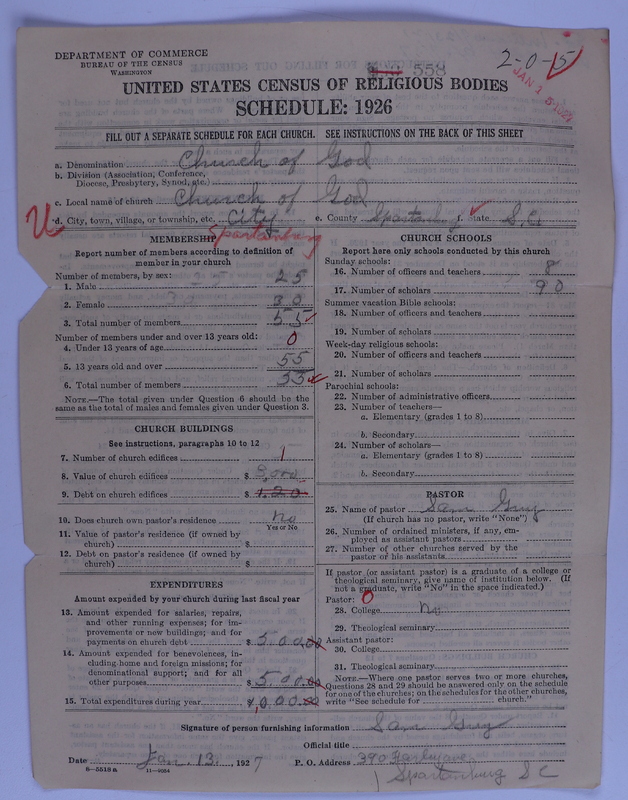 DEPARTMENT OF COMMERCE
BUREAU OF THE CENSUS
WASHINGTON
558
2-0-15
JAN 15 1927
UNITED STATES CENSUS OF RELIGIOUS BODIES
SCHEDULE: 1926
FILL OUT A SEPARATE SCHEDULE FOR EACH CHURCH. SEE INSTRUCTIONS ON THE BACK OF THIS SHEET
a. Denomination Church of God
b. Division (Association, Conference, Diocese, Presbytery, Synod, etc.)
c. Local name of church Church of God
U d. City, town, village, or township, etc. City e. County Spartanburg f. State S.C.
Spartanburg
MEMBERSHIP
Report number of members according to definition of member in your church
Number of members, by sex:
1. Male 25
2. Female 30
3. Total number of members 55
Number of members under and over 13 years old:
4. Under 13 years of age 0
5. 13 years old and over 55
6. Total number of members 55
NOTE.—The total given under Question 6 should be the same as the total of males and females given under Question 3.
CHURCH BUILDINGS
See instructions, paragraphs 10 to 12
7. Number of church edifices 1
8. Value of church edifices $ 8,000
9. Debt on church edifices $ 1.20
10. Does church own pastor's residence No
Yes or No
11. Value of pastor's residence (if owned by church) $
12. Debt on pastor's residence (if owned by church) $
EXPENDITURES
Amount expended by your church during last fiscal year
13. Amount expended for salaries, repairs, and other running expenses; for improvements or new buildings; and for payments on church debt $ 500.00
14. Amount expended for benevolences, including home and foreign missions; for denominational support; and for all other purposes $ 500.00
15. Total expenditures during year $ 1,000.00
CHURCH SCHOOLS
Report here only schools conducted by this church
Sunday schools:
16. Number of officers and teachers 8
17. Number of scholars 90
Summer vacation Bible schools:
18. Number of officers and teachers
19. Number of scholars
Week-day religious schools:
20. Number of officers and teachers
21. Number of scholars
Parochial schools:
22. Number of administrative officers
23. Number of teachers—
a. Elementary (grades 1 to 8)
b. Secondary
24. Number of scholars—
a. Elementary (grades 1 to 8)
b. Secondary
PASTOR
25. Name of pastor Sam Guy
(If church has no pastor, write "None")
26. Number of ordained ministers, if any, employed as assistant pastors
27. Number of other churches served by the pastor or his assistants
If pastor (or assistant pastor) is a graduate of a college or theological seminary, give name of institution below. (If not a graduate, write "No" in the space indicated.)
Pastor: 0
28. College No
29. Theological seminary
Assistant pastor:
30. College
31. Theological seminary
NOTE.—Where one pastor serves two or more churches, Questions 28 and 29 should be answered only on the schedule for one of the churches; on the schedules for the other churches, write "See schedule for church."
Signature of person furnishing information Sam Guy
Official title
Date Jan. 13, 1927 P. O. Address 390
Spartanburg S C
8—5519 a 11—9054